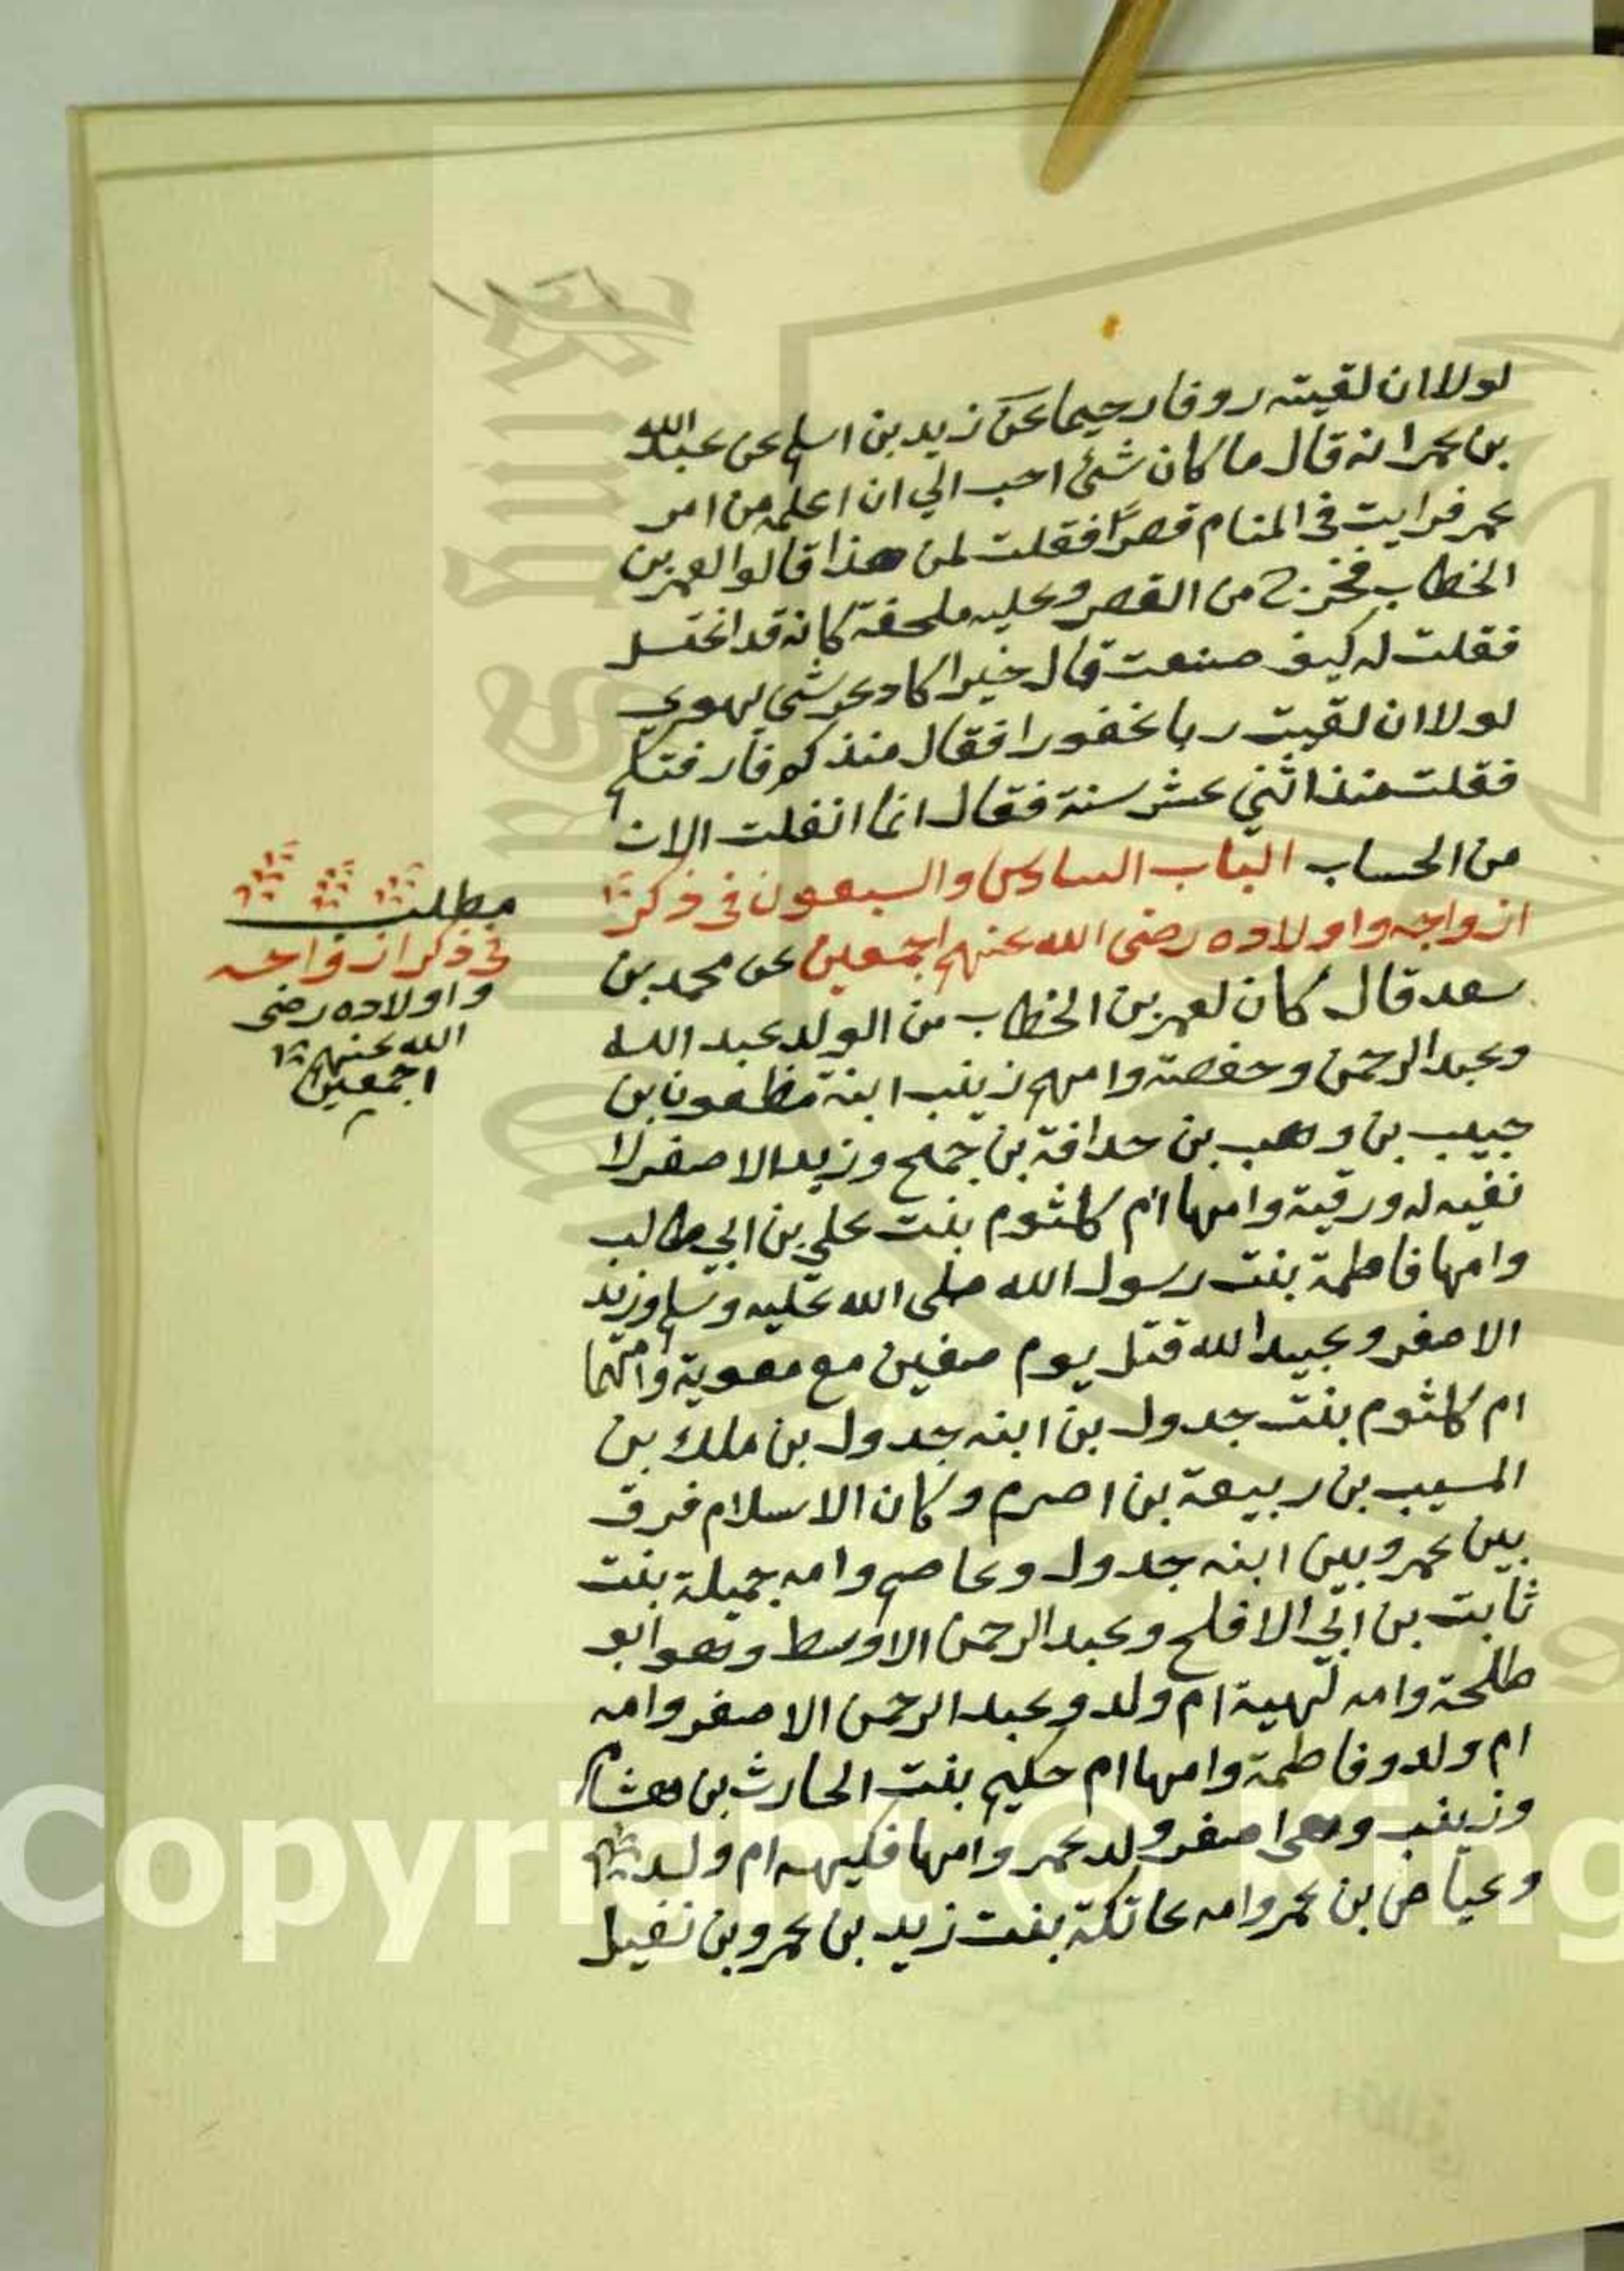 لولا ان لقيته روفا رحيما عن زيد بن اسلم عن عبدالله
بن عمر انه قال ما كان شئ احب الي ان اعلمه من امر
عمر فرايت في المنام قصرًا فقلت لمن هذا قالوا لعمر بن
الخطاب فخرج من القصر وعليه ملحفة كانه قد اغتسل
فقلت له كيف صنعت قال خيرا كاد عرشي يهوي
لولا ان لقيت ربا غفورا فقال منذ كم فارقتكم
فقلت منذ اثني عشر سنة فقال انما انفلت الان
من الحساب الباب السادس والسبعون في ذكر
ازواجه واولاده رضى الله عنهم اجمعين عن محمد بن
سعد قال كان لعمر بن الخطاب من الولد عبد الله
وعبد الرحمن وحفصة وامهم زينب ابنة مظعون بن
حبيب بن وهب بن حدافة بن جمح وزيد الاصغر لا
نفيه له ورقية وامها ام كلثوم بنت علي بن ابي طالب
وامها فاطمة بنت رسول الله صلى الله عليه وسلم وزيد
الاصغر وعبيد الله قتل يوم صفين مع معوية وامهما
ام كلثوم بنت جدول بن ابنه جدول بن ملك بن
المسيب بن ربيعة بن اصرم وكان الاسلام فرق
بين عمر وبين ابنه جدول وعاصم وامه جميلة بنت
ثابت بن ابي الافلح وعبد الرحمن الاوسط وهو ابو
طلحة وامه لهية ام ولد وعبد الرحمن الاصغر وامه
ام ولد وفاطمة وامها ام حكيم بنت الحارث بن هشام
وزينب وهى اصغر ولد عمر وامها فكيهه ام ولد
وعياض بن عمر وامه عاتكة بنت زيد بن عمرو بن نفيل
مطلب
في ذكر ازواجه
واولاده رضى
الله عنهم
اجمعين
Copyright © King